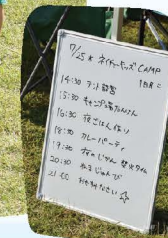 7/25 * ネイチャーキッズ CAMP
1日目
14:30 テント設営
15:30 キャンプ場たんけん
16:30 夜ごはん作り
18:30 カレーパーティ
19:30 夜のじかん 焚火タイム
20:30 ねるじゅんび
21:00 おやすみなさい ☆